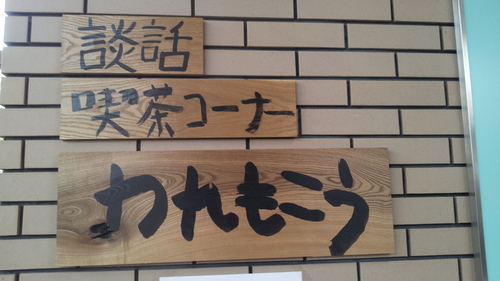 談話
喫茶コーナー
われもこう